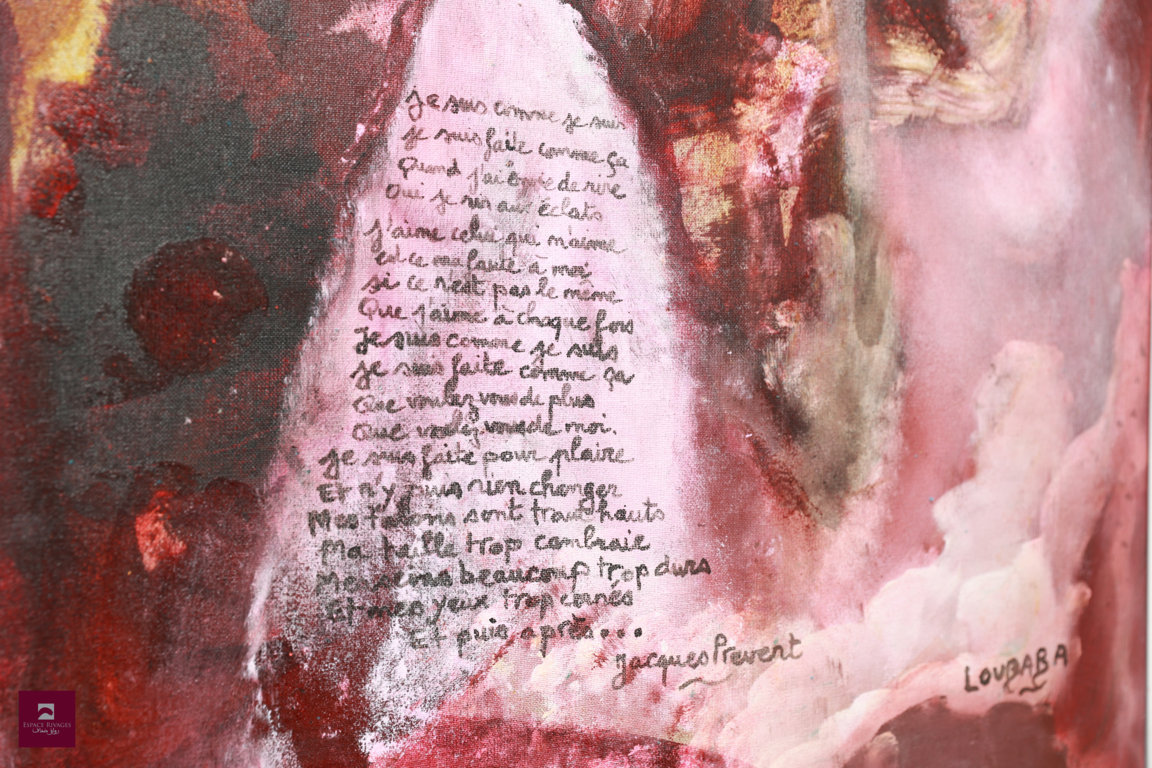 Je suis comme je suis
je suis faite comme ça
Quand j'ai envie de rire
Oui je ris aux éclats
j'aime celui qui m'aime
est ce ma faute à moi
si ce n'est pas le même
Que j'aime à chaque fois
Je suis comme je suis
je suis faite comme ça
Que voulez vous de plus
Que voulez vous de moi.
je suis faite pour plaire
Et n'y puis rien changer
Mes talons sont trop hauts
Ma taille trop cambraie
Mes seins beaucoup trop durs
Et mes yeux trop cernés
Et puis après...
Jacques Prevert
LOUBABA
ESPACE RIVAGES
رواق ضفاف